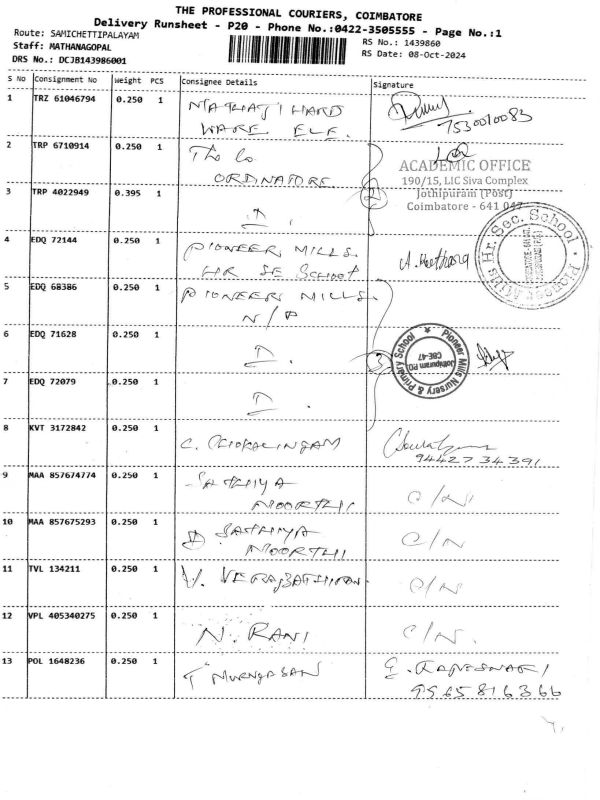 THE PROFESSIONAL COURIERS, COIMBATORE
Delivery Runsheet - P20 - Phone No.:0422-3505555 - Page No.:1
Route: SAMICHETTIPALAYAM
Staff: MATHANAGOPAL
DRS No.: DCJB143986001
RS No.: 1439860
RS Date: 08-Oct-2024
S No Consignment No Weight PCS Consignee Details Signature
1 TRZ 61046794 0.250 1 HARD
WARE ELE.
7530010083
2 TRP 6710914 0.250 1 The Co
ORDNATORE
ACADEMIC OFFICE
190/15, LIC Siva Complex
Jothipuram (Post)
Coimbatore - 641 047
3 TRP 4022949 0.395 1
2
4 EDQ 72144 0.250 1 PIONEER MILLS.
HR SE SCHOOL
Pioneer Mills Hr. Sec. School
5 EDQ 68386 0.250 1 PIONEER MILLS.
N/P
6 EDQ 71628 0.250 1
3
Pioneer Mills Nursery & Primary School
Jothipuram P.O.
CBE-47
7 EDQ 72079 0.250 1
8 KVT 3172842 0.250 1 C. CHOKALINGAM
94427 34391
9 MAA 857674774 0.250 1 SATHIYA
MOORTHI
C/N.
10 MAA 857675293 0.250 1 SATHIYA
MOORTHI
C/N
11 TVL 134211 0.250 1 V.
C/N
12 VPL 405340275 0.250 1 N. RANI C/N.
13 POL 1648236 0.250 1 T MURUGASAN E.
9965816366